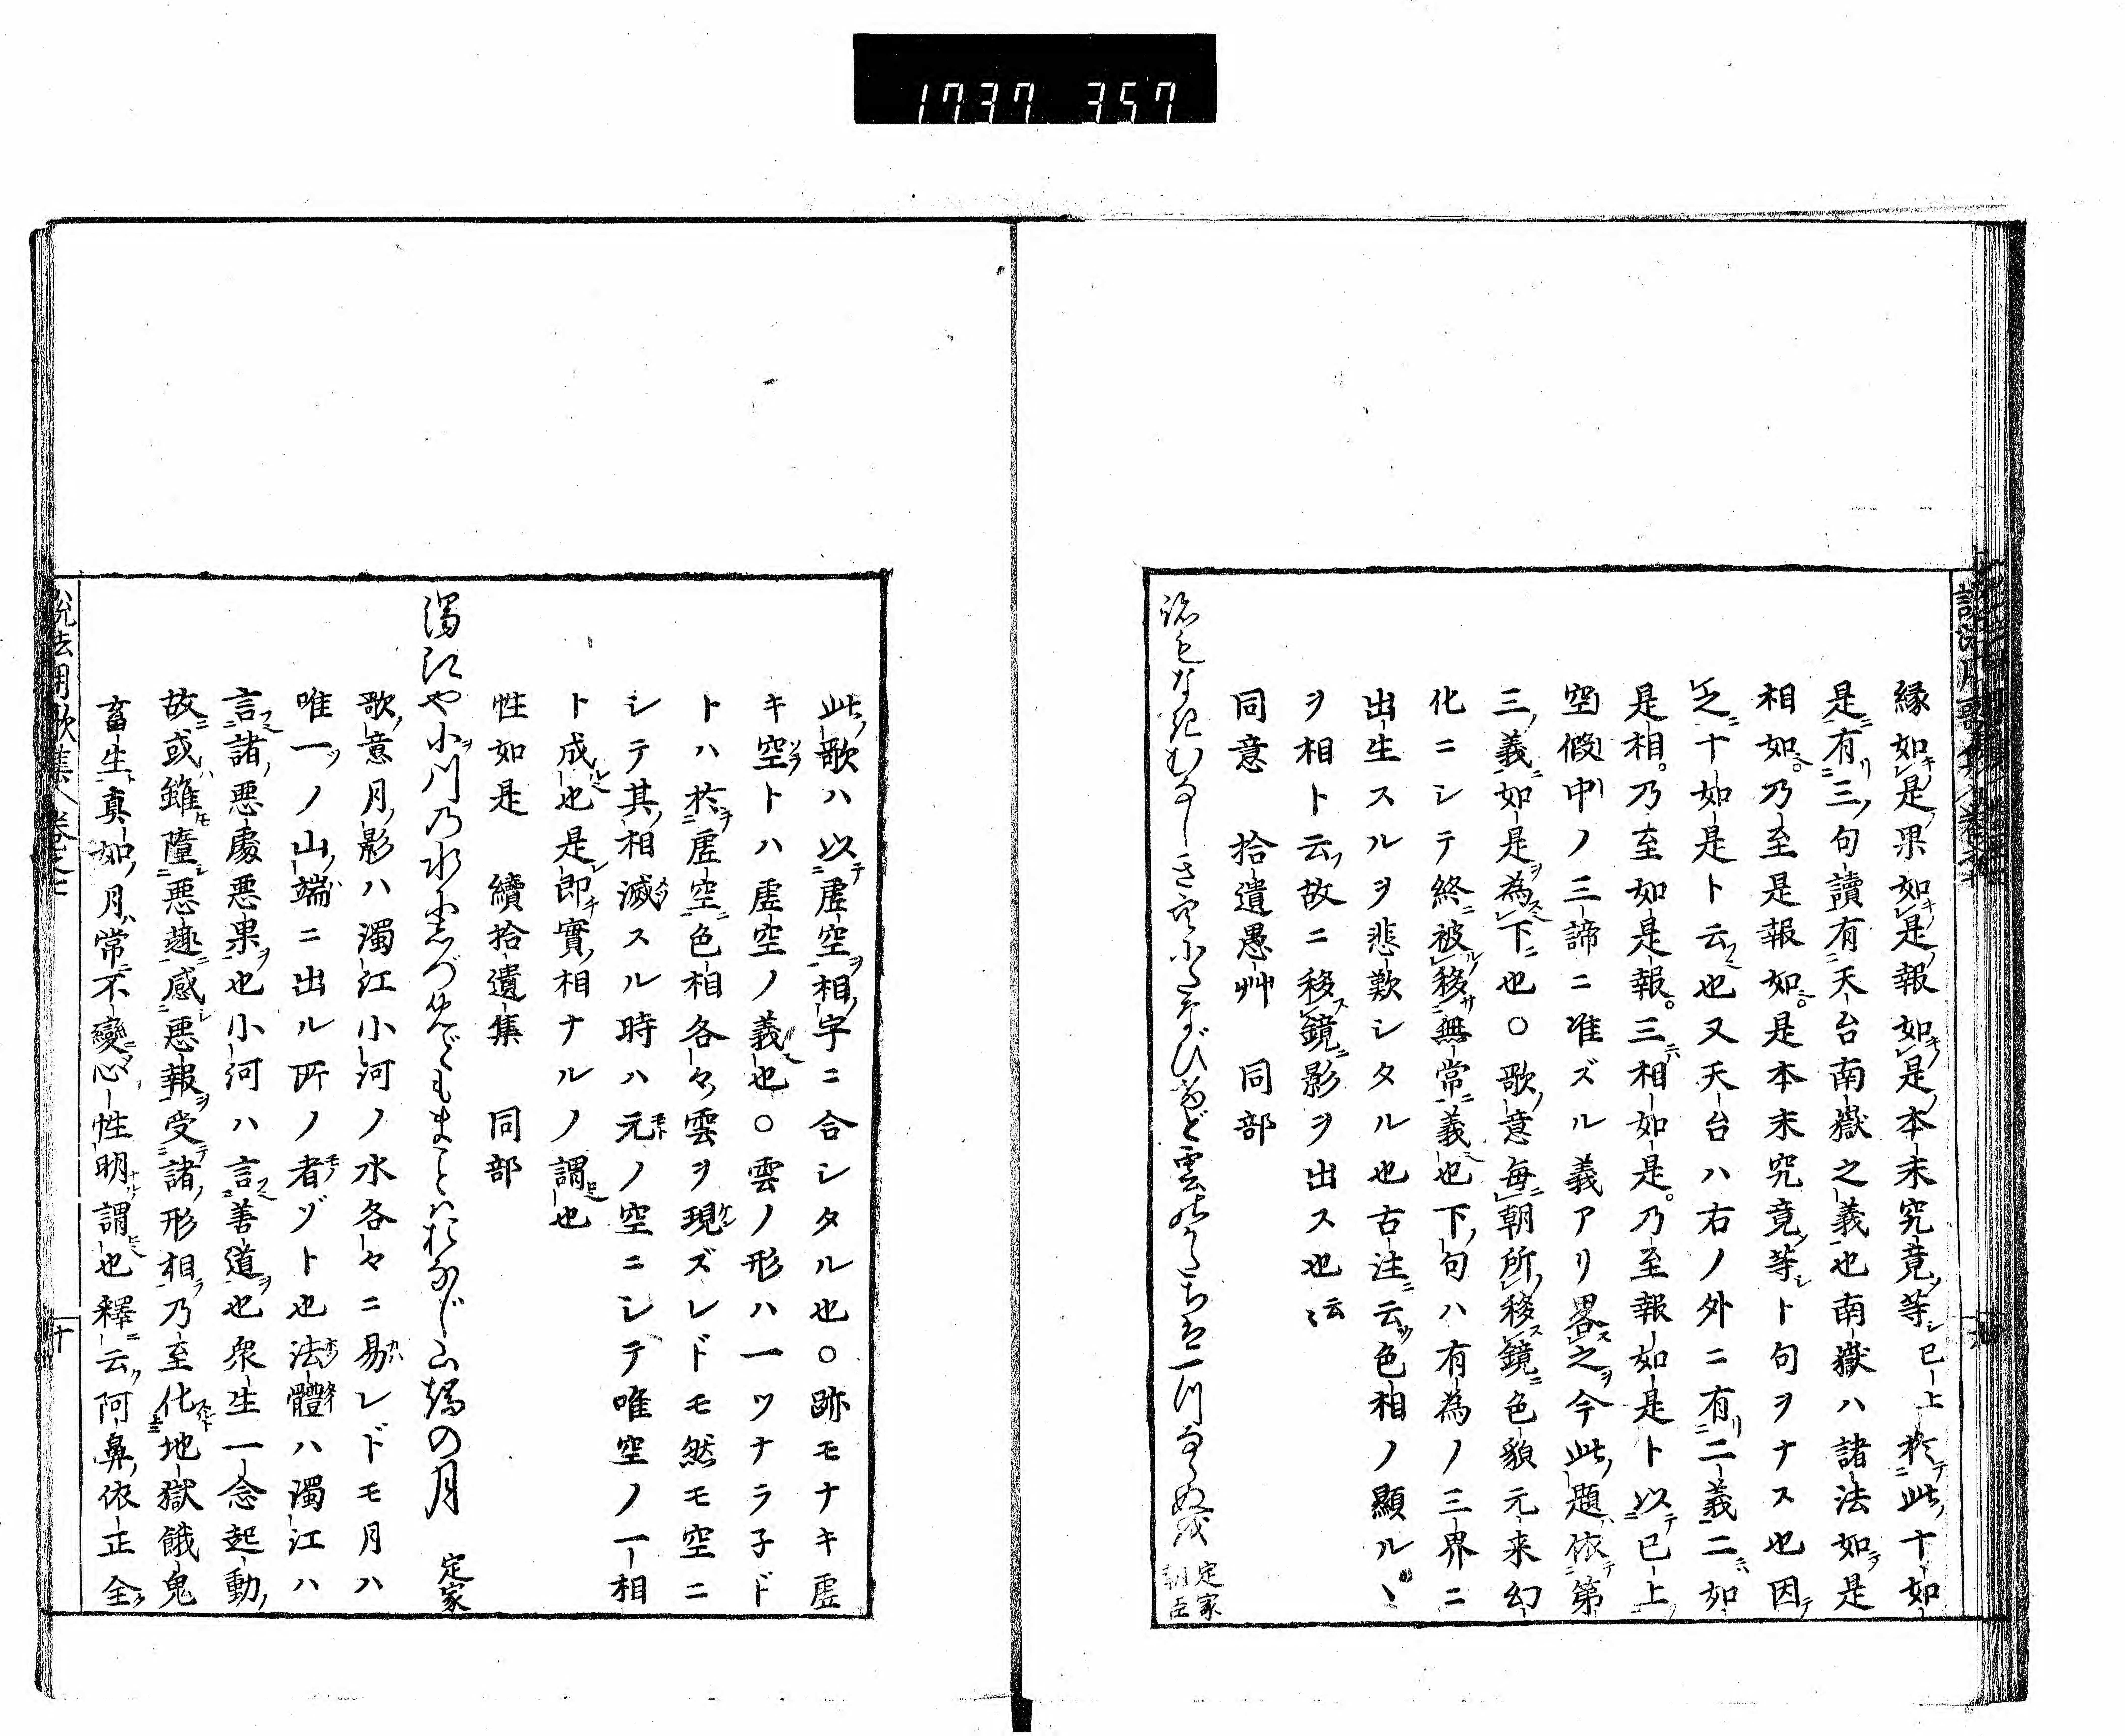 1737 357
縁如是果如是報如是本末究竟等已上於此十如
是有三句讀有天台南嶽之義也南嶽ハ諸法如是
相如乃至是報如是本末究竟等ト句ヲナス也因
之十如是ト云也又天台ハ右ノ外ニ有二義二如
是相乃至如是報三相如是乃至報如是ト以已上
空假中ノ三諦ニ准ズル義アリ畧之今此題依第
三義如是為下也○歌意毎朝所移鏡色貌元来幻
化ニシテ終被移無常義也下句ハ有為ノ三界ニ
出生スルヲ悲歎シタル也古注云色相ノ顯ルヽ
ヲ相ト云故ニ移鏡影ヲ出ス也云〻
同意 拾遺愚艸 同部
跡もなきむなしき空にたなびけど雲のかたちは一つならぬを 定家朝臣
此歌ハ以虚空相字ニ合シタル也○跡モナキ虚
キ空トハ虚空ノ義也○雲ノ形ハ一ツナラ子ド
トハ於虚空色相各々雲ヲ現ズレドモ然モ空ニ
シテ其相滅スル時ハ元ノ空ニシテ唯空ノ一相
ト成也是即實相ナルノ謂也
性如是 續拾遺集 同部
濁江や小川の水にしづめどもまことはおなじ山端の月 定家
歌意月影ハ濁江小河ノ水各々ニ易レドモ月ハ
唯一ノ山端ニ出ル所ノ者ヅト也法體ハ濁江ハ
言諸悪處悪果也小河ハ言善道也衆生一念起動
故或雖墮悪趣感悪報受諸形相乃至化地獄餓鬼
畜生真如月常不變心性明謂也釋云阿鼻依正全
説法用歌集 卷之七 十